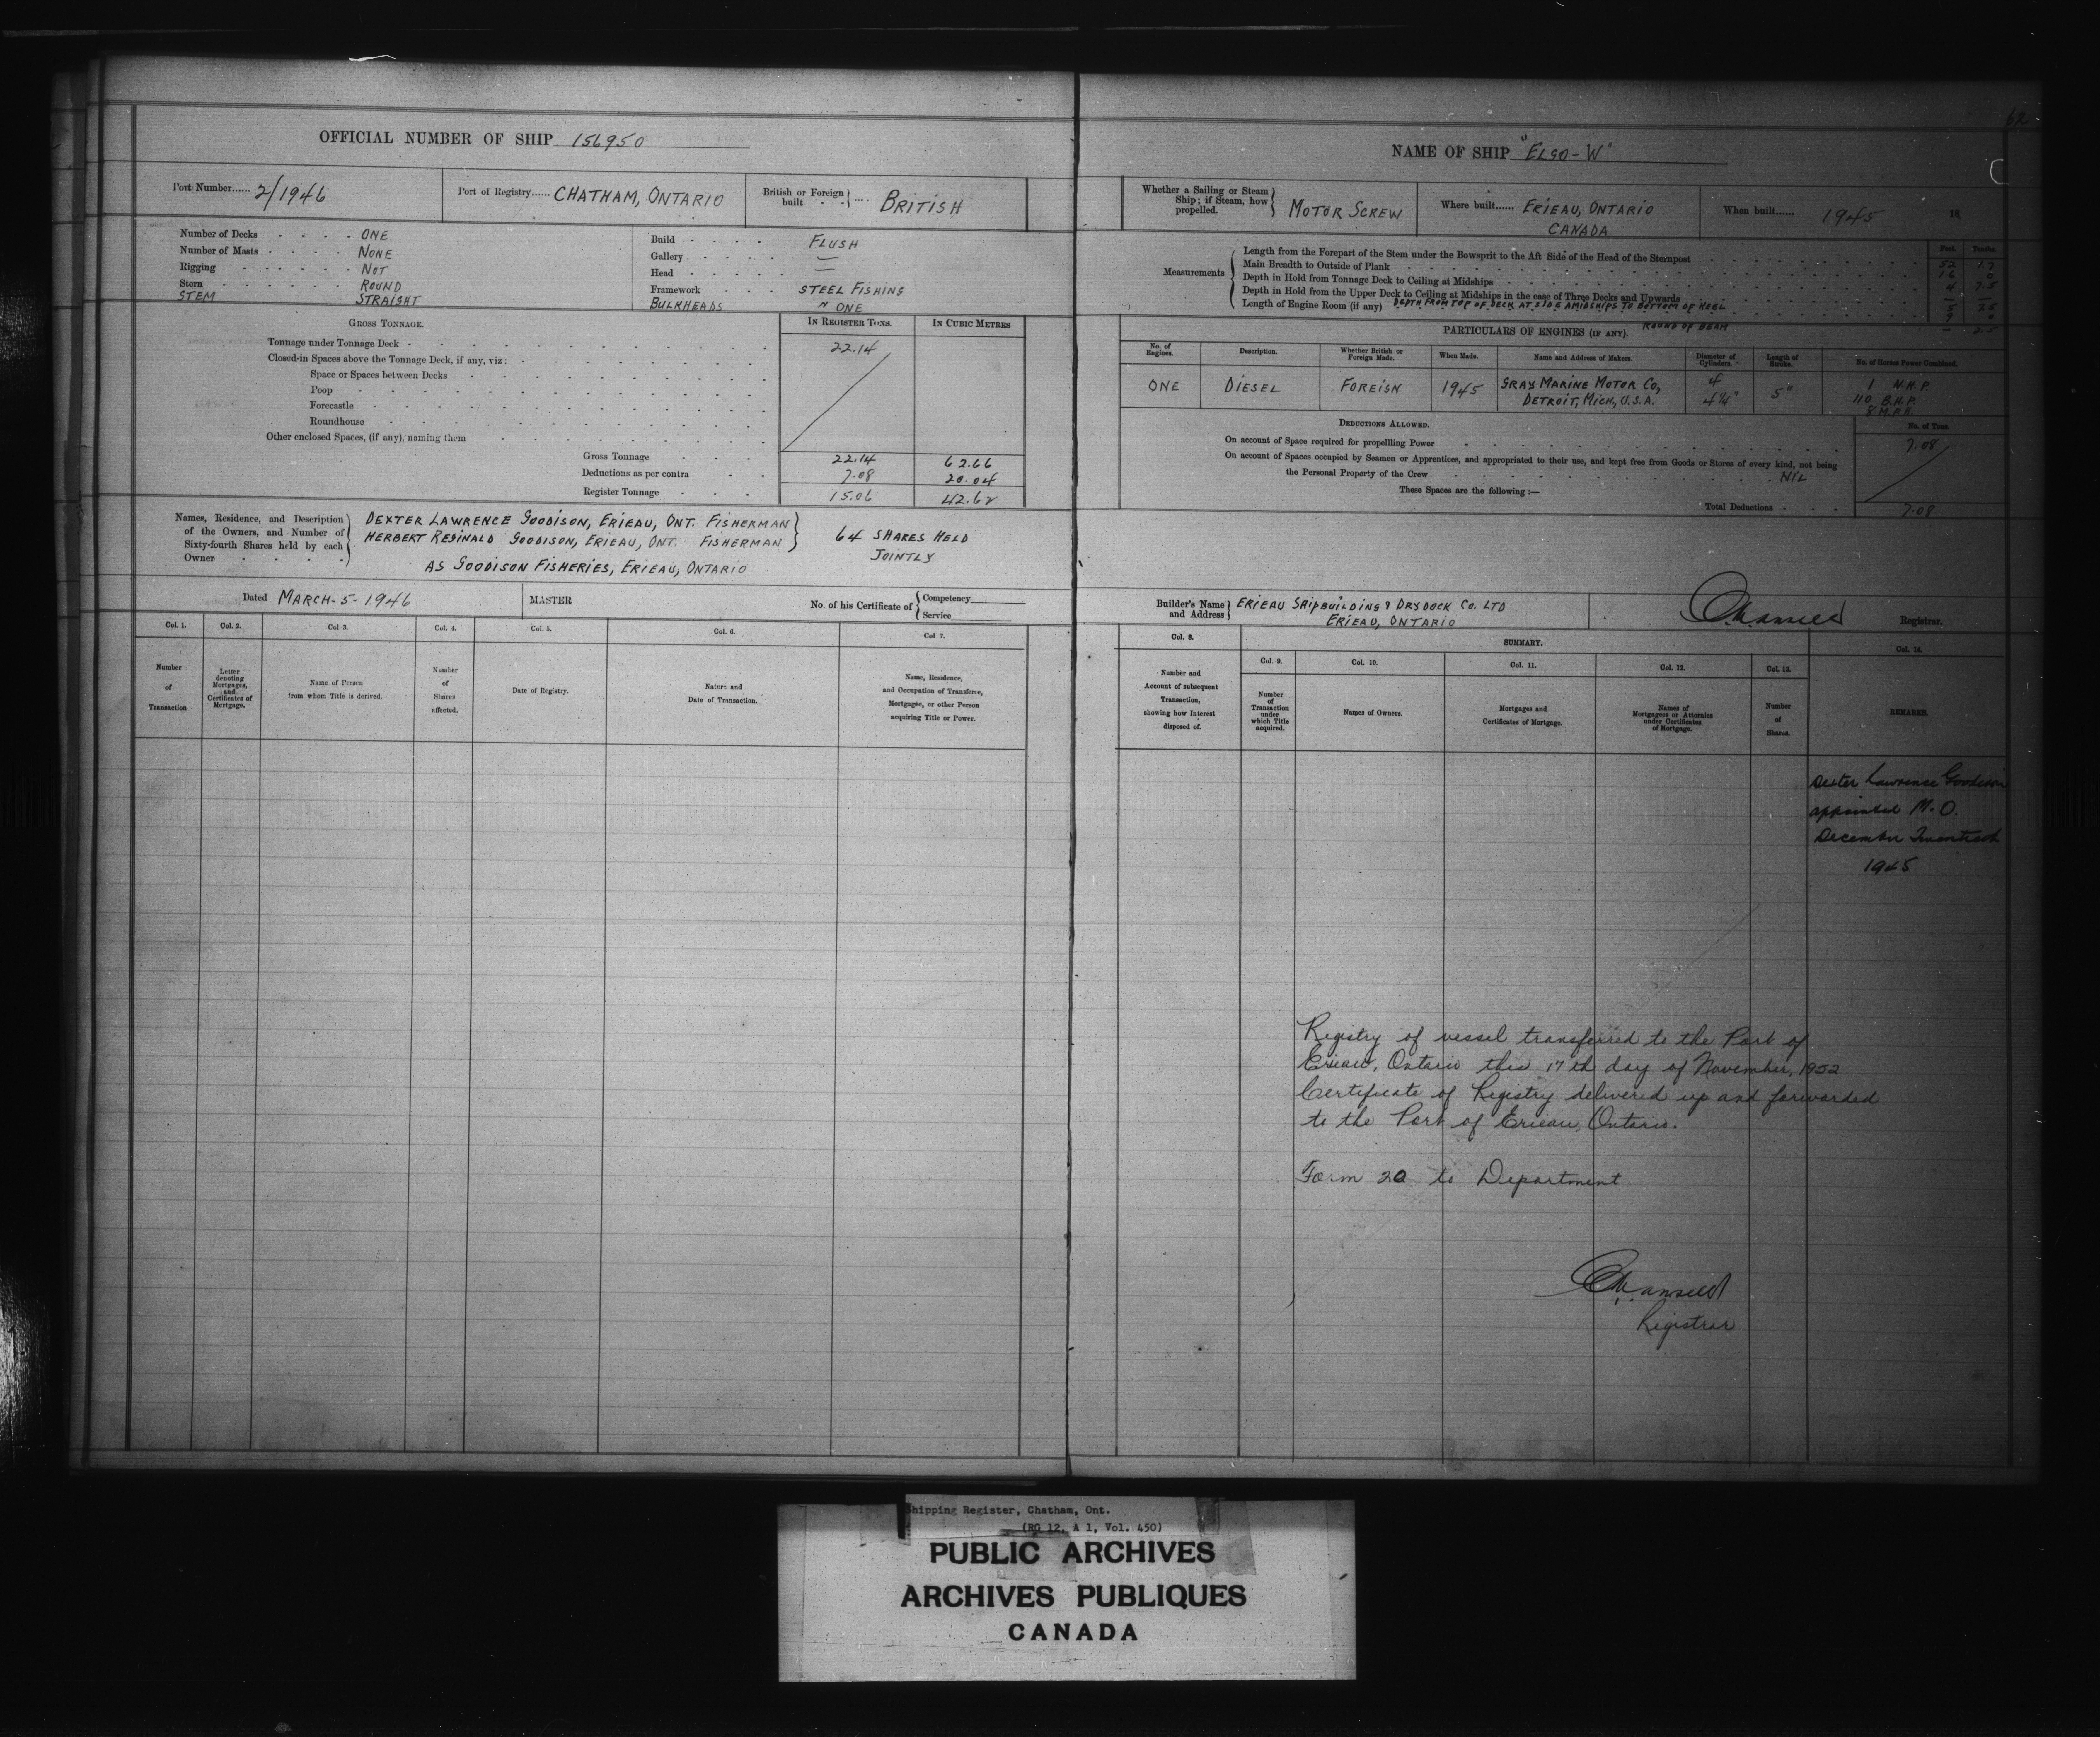 62
OFFICIAL NUMBER OF SHIP 156950
Port Number...... 2/1946
Port of Registry...... CHATHAM, ONTARIO
British or Foreign built .... BRITISH
Number of Decks - - - - ONE
Number of Masts - - - - NONE
Rigging - - - - - NOT
Stern - - - - - ROUND
STEM STRAIGHT
Build - - - - FLUSH
Gallery - - - - —
Head - - - - - —
Framework - - - STEEL FISHING
BULKHEADS " ONE
GROSS TONNAGE.
IN REGISTER TONS.
IN CUBIC METRES
Tonnage under Tonnage Deck - 22.14
Closed-in Spaces above the Tonnage Deck, if any, viz:
Space or Spaces between Decks
Poop
Forecastle
Roundhouse
Other enclosed Spaces, (if any), naming them
Gross Tonnage 22.14 62.66
Deductions as per contra 7.08 20.04
Register Tonnage 15.06 42.62
Names, Residence, and Description of the Owners, and Number of Sixty-fourth Shares held by each Owner
DEXTER LAWRENCE GOODISON, ERIEAU, ONT. FISHERMAN
HERBERT REGINALD GOODISON, ERIEAU, ONT. FISHERMAN
64 SHARES HELD
JOINTLY
AS GOODISON FISHERIES, ERIEAU, ONTARIO
Dated MARCH-5-1946
MASTER
No. of his Certificate of
Competency
Service
Col. 1.
Col. 2.
Col 3.
Col. 4.
Col. 5.
Col. 6.
Col 7.
Number of Transaction
Letter denoting Mortgages, and Certificates of Mortgage.
Name of Person from whom Title is derived.
Number of Shares affected.
Date of Registry.
Nature and Date of Transaction.
Name, Residence, and Occupation of Transferee, Mortgagee, or other Person acquiring Title or Power.
NAME OF SHIP "ELGO-W"
Whether a Sailing or Steam Ship; if Steam, how propelled. MOTOR SCREW
Where built...... ERIEAU, ONTARIO
CANADA
When built...... 1945
18
Measurements
Feet. Tenths.
Length from the Forepart of the Stem under the Bowsprit to the Aft Side of the Head of the Sternpost 52 1.7
Main Breadth to Outside of Plank 16 0
Depth in Hold from Tonnage Deck to Ceiling at Midships 4 7.5
Depth in Hold from the Upper Deck to Ceiling at Midships in the case of Three Decks and Upwards —
DEPTH FROM TOP OF DECK AT SIDE AMIDSHIPS TO BOTTOM OF KEEL
Length of Engine Room (if any)
ROUND OF BEAM
PARTICULARS OF ENGINES (IF ANY).
No. of Engines.
Description.
Whether British or Foreign Made.
When Made.
Name and Address of Makers.
Diameter of Cylinders.
Length of Stroke.
No. of Horses Power Combined.
ONE
DIESEL
FOREIGN
1945
GRAY MARINE MOTOR CO,
DETROIT, MICH, U.S.A.
4
4¼"
5"
1 N.H.P.
110 B.H.P.
8 M.P.H.
DEDUCTIONS ALLOWED.
No. of Tons.
On account of Space required for propelling Power 7.08
On account of Spaces occupied by Seamen or Apprentices, and appropriated to their use, and kept free from Goods or Stores of every kind, not being
the Personal Property of the Crew NIL
These Spaces are the following:—
Total Deductions 7.08
Builder's Name and Address
ERIEAU SHIPBUILDING & DRYDOCK CO. LTD
ERIEAU, ONTARIO
Registrar.
Col. 8.
SUMMARY.
Col. 14.
Col. 9.
Col. 10.
Col. 11.
Col. 12.
Col. 13.
Number and Account of subsequent Transaction, showing how Interest disposed of.
Number of Transaction under which Title acquired.
Names of Owners.
Mortgages and Certificates of Mortgage.
Names of Mortgagees or Attornies under Certificates of Mortgage.
Number of Shares.
REMARKS.
Dexter Lawrence Goodison
appointed M.O.
December Twentieth
1945
Registry of vessel transferred to the Port of
Erieau, Ontario this 17th day of November, 1952
Certificate of Registry delivered up and forwarded
to the Port of Erieau, Ontario.
Form 20 to Department
Registrar
Shipping Register, Chatham, Ont.
(RG 12, A 1, Vol. 450)
PUBLIC ARCHIVES
ARCHIVES PUBLIQUES
CANADA